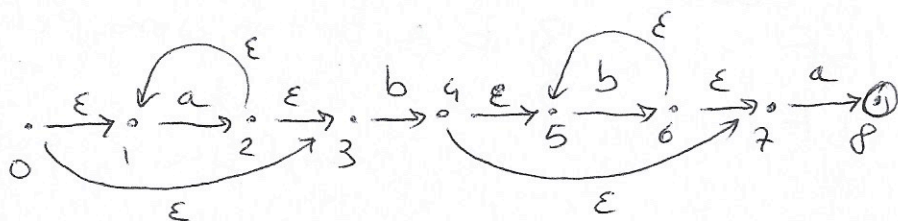 ε ε
ε a ε b 4 ε b ε a
0 1 2 3 5 6 7 8
ε ε